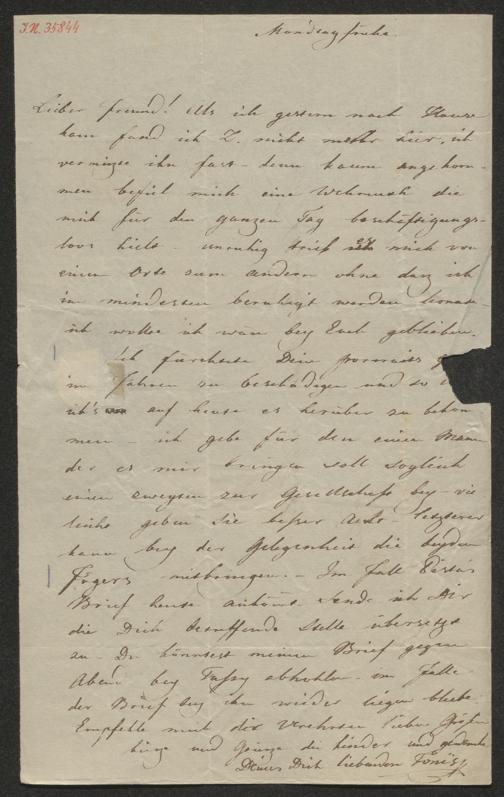 I.N. 35844
Mondtag frühe.
Lieber Freund! Als ich gestern nach Hause
kam fand ich Z. nicht mehr hier, ich
vermisse ihn fast – denn kaum angekom-
men befiel mich eine Wehmuth die
mich für den ganzen Tag beschäftigungs-
loos hielt – unruhig trieb es mich von
einen Orte zum andern ohne daß ich
im mindesten beruhigt werden konnte
ich wollte ich wäre bey Euch geblieben.
Ich fürchtete Dein portrait
im Fahren zu beschädigen und so
ich's auf heute es herüber zu bekom
men – ich gebe für den einen Mann
der es mir bringen soll sogleich
einen zweyten zur Gesellschaft bey – vie
leicht geben Sie beßer acht – letzterer
kann bey der Gelegenheit die beyden
mitbringen. – Im Fall
Brief heute ankömt sende ich Dir
die Dich betreffende Stelle übersetzt
zu – Du könntest meinen Brief gegen
Abend bey abhohlen – im Falle
der Brief bey ihn wieder liegen bliebe
Empfehle mich der Verehrten lieben Gräfin
und die Kinder und gedenke
Deines Dich liebenden